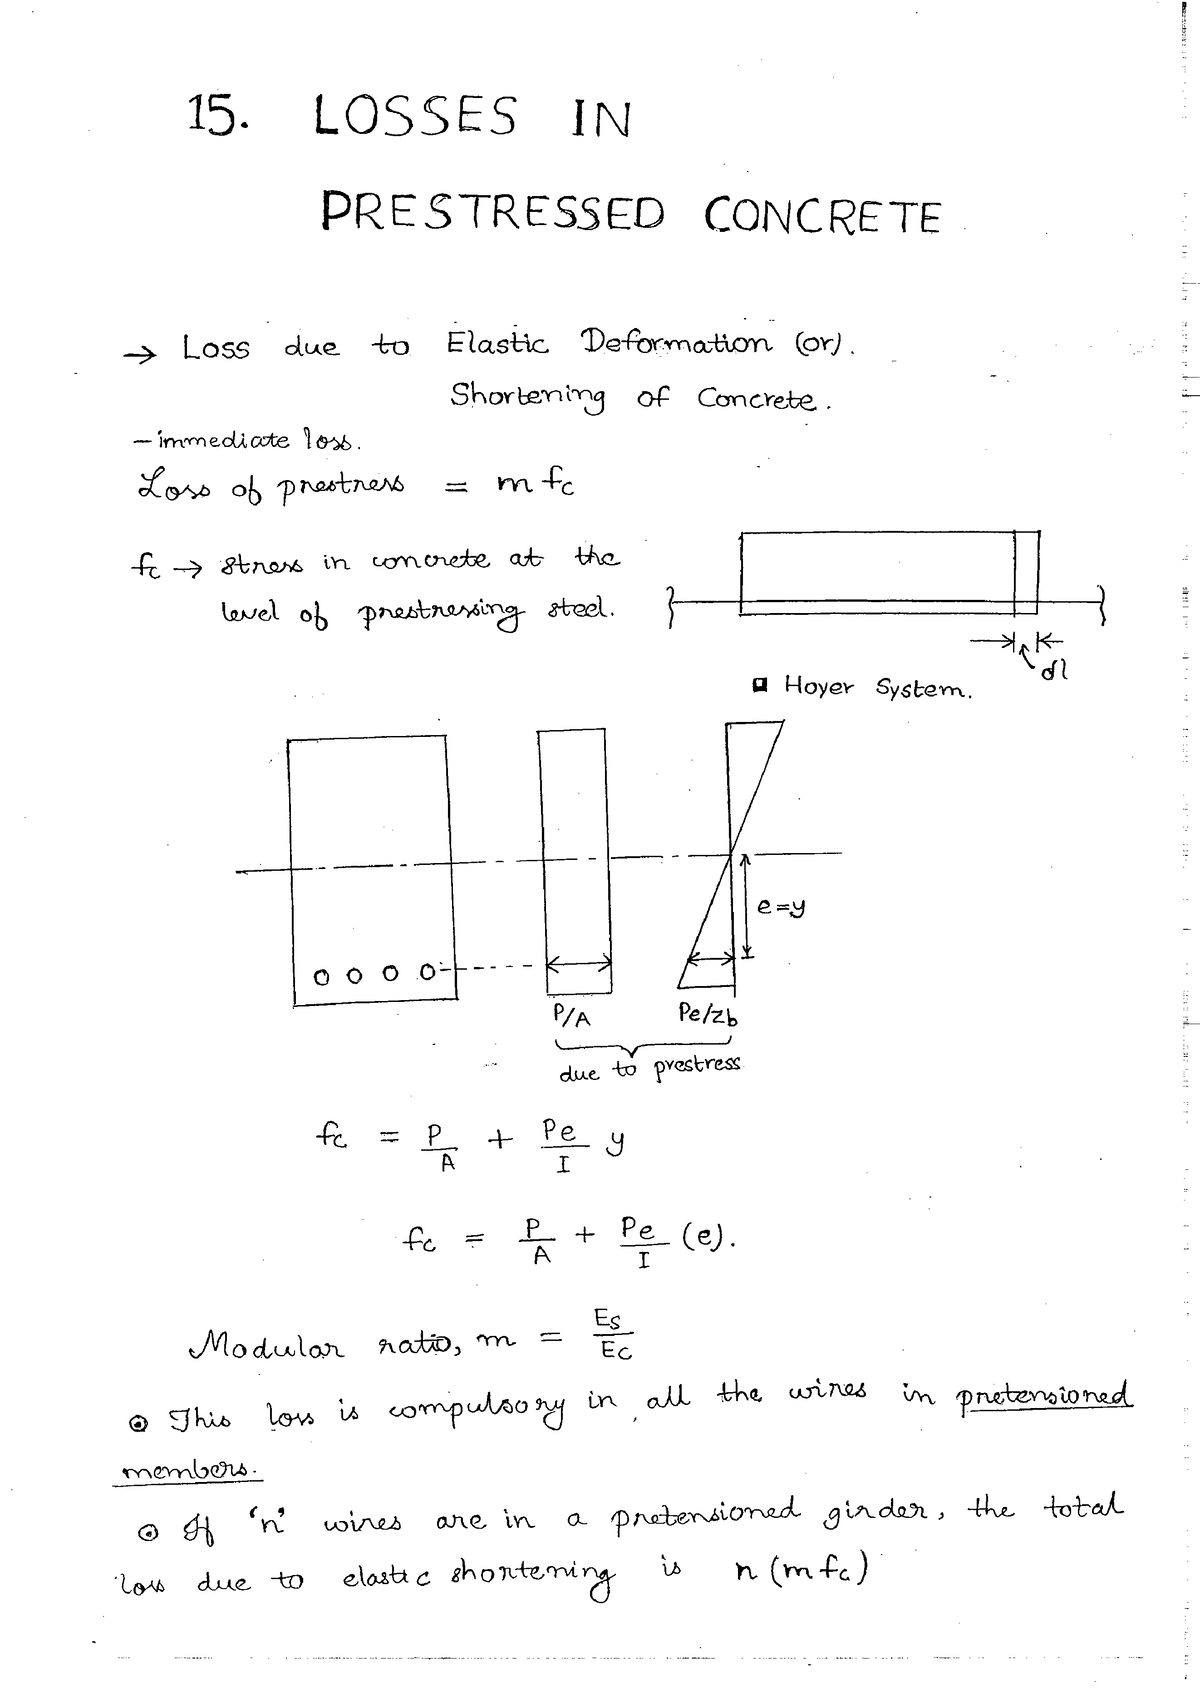 15. LOSSES IN
PRESTRESSED CONCRETE
→ Loss due to Elastic Deformation (or).
Shortening of Concrete.
– immediate loss.
Loss of prestress = m fc
fc → stress in concrete at the
level of prestressing steel.
dl
Hoyer System.
e=y
P/A
Pe/zb
due to prestress
fc = P/A + Pe/I y
fc = P/A + Pe/I (e).
Modular ratio, m = Es/Ec
⊙ This loss is compulsory in all the wires in pretensioned
members.
⊙ If 'n' wires are in a pretensioned girder, the total
loss due to elastic shortening is n (m fc)